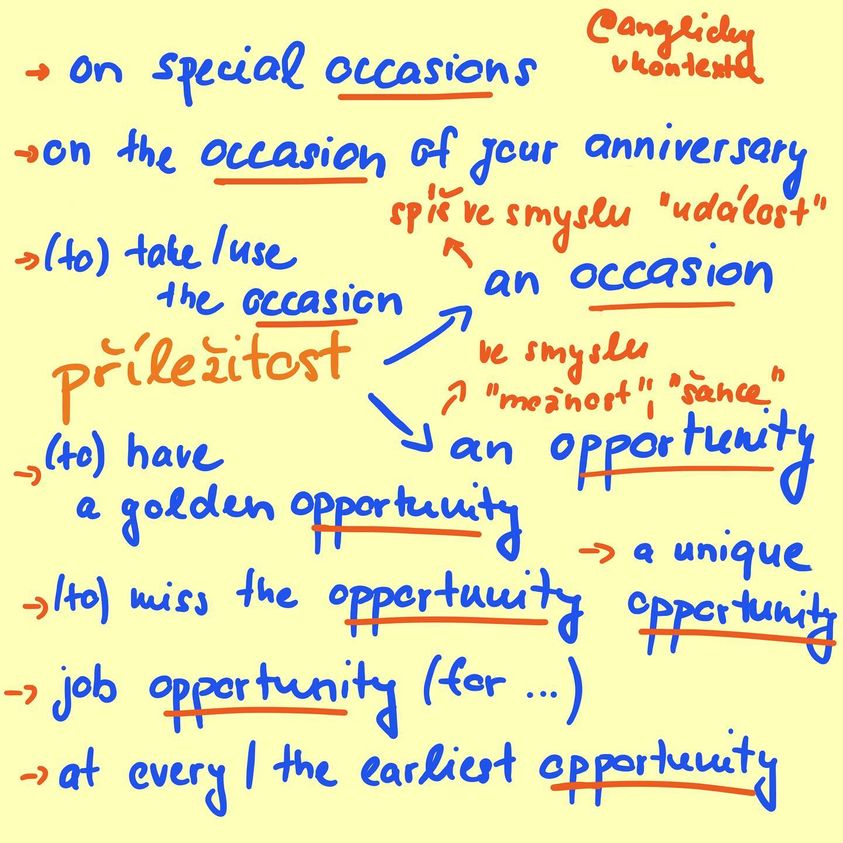 @anglicky
vkontextu
→ on special occasions
→ on the occasion of your anniversary
spíš ve smyslu "událost"
→ (to) take / use
the occasion
an occasion
příležitost
ve smyslu
"možnost", "šance"
an opportunity
→ (to) have
a golden opportunity
→ a unique
opportunity
→ (to) miss the opportunity
→ job opportunity (for ...)
→ at every / the earliest opportunity